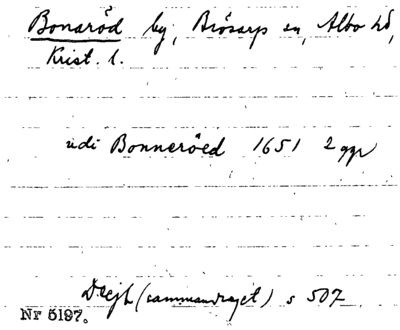 Bonaröd by, Brösarps sn, Albo hd,
Krist. l.
udi Bonneröed 1651 2 ggr
DLejh (sammandraget) s 507
Nr 5197.